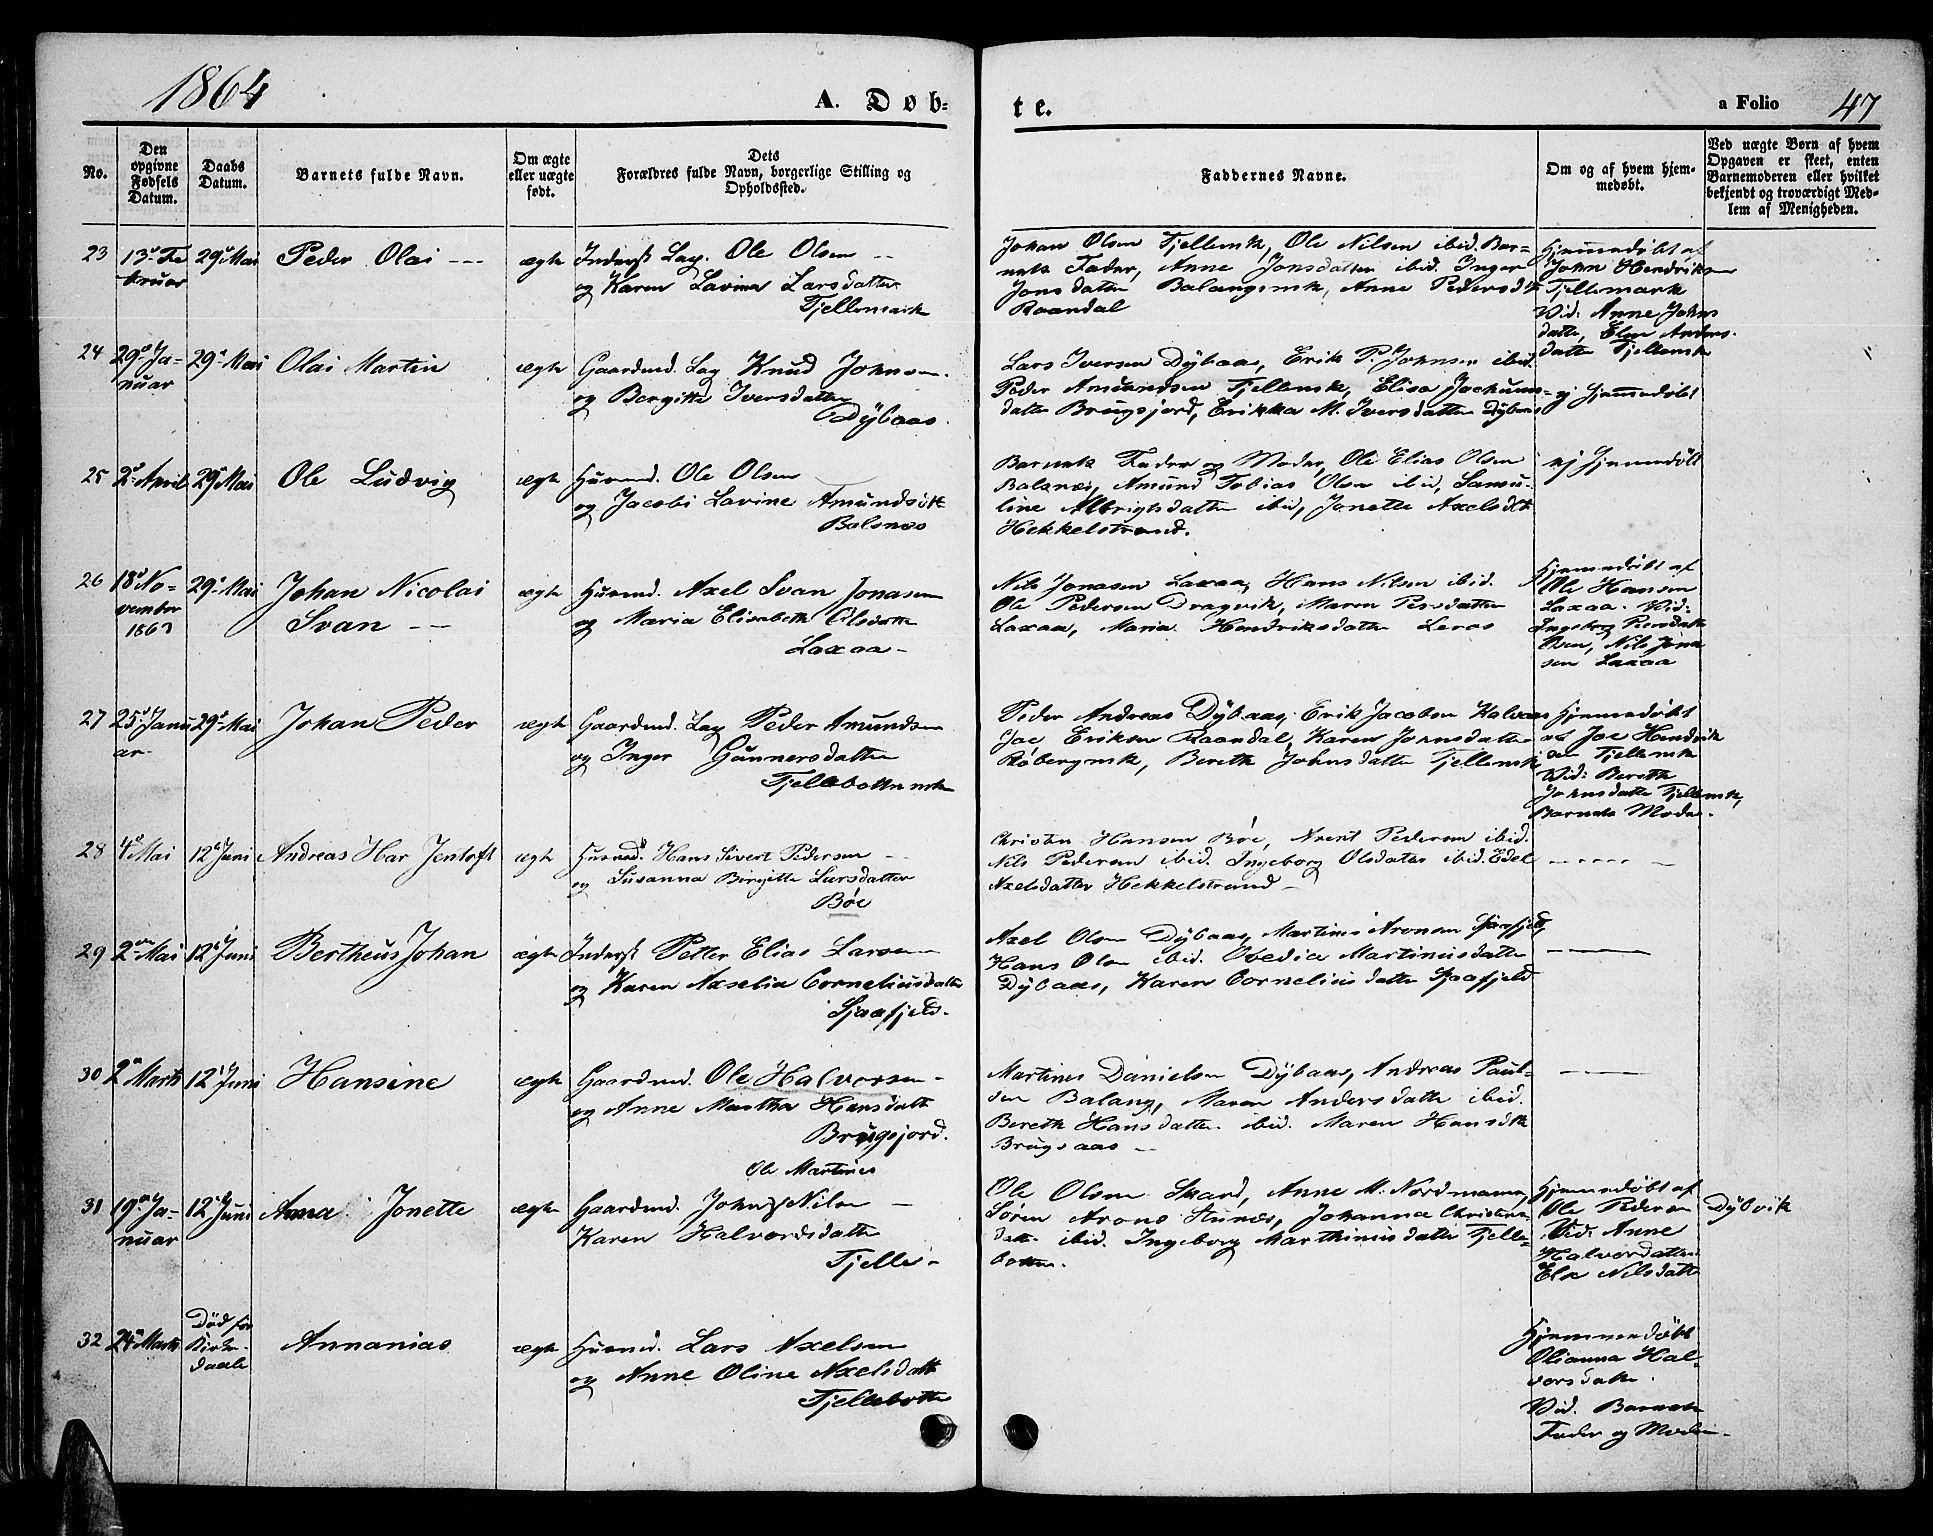 1864
A. Døb-
te.
a Folio 47
No.
Den opgivne Fødsels Datum.
Daabs Datum.
Barnets fulde Navn.
Om ægte eller uægte født.
Dets Forældres fulde Navn, borgerlige Stilling og Opholdssted.
Faddernes Navne.
Om og af hvem hjemmedøbt.
Ved uægte Børn af hvem Opgaven er skeet, enten Barnemoderen eller hvilket bekjendt og troværdigt Medlem af Menigheden.
23 13de Fe 29de Mai Peder Olai ægte Inderst Lap. Ole Olsen
bruar og Karen Lavina Larsdatter
Fjellemark
Johan Olsen Fjellemk, Ole Nilsen ibid. Bar-
nets Fader, Anne Jonsdatter ibid. Inger
Jonsdatter Balangsmk, Anne Pedersdtr
Raandal
Hjemmedøbt af
John Hendriksen
Fjellemark
Vid: Anne Johns
datter, Elen Anders-
datter Fjellemk
24 29de Ja- 29de Mai Olai Martin ægte Gaardmd. Lap Knud Johnsen
nuar og Bergitte Iversdatter
Dÿbaas.
Lars Iversen Dÿbaas, Erik P. Johnsen ibid.
Peder Amundsen Fjellemk, Elisa Jachums-
datter Brugsjord, Erikka M. Iversdatter Dÿbaas
ej hjemmedøbt
25 2de April 29de Mai Ole Ludvig ægte Husmd. Ole Olsen
og Jacobi Lavine Amundsdtr
Balsnæs
Barnets Fader og Moder, Ole Elias Olsen
Balsnæs, Amund Tobias Olsen ibid, Samu-
line Albrigtsdatter ibid, Jonette Axelsdtr
Hekkelstrand.
ej hjemmedøbt
26 18de No- 29de Mai Johan Nicolai ægte Husmd. Axel Svan Jonasen
vember Svan og Maria Elisabeth Olsdatter
1863 Laxaa
Nils Jonasen Laxaa, Hans Nilsen ibid.
Ole Pedersen Dragvik, Maren Persdatter
Laxaa, Maria Hendriksdatter Leros
Hjemmedøbt af
Ole Hansen
Laxaa. Vid:
Ingeborg Persdatter
Nils Jona
sen Laxaa
27 25de Janu 29de Mai Johan Peder ægte Gaardmd. Lap Peder Amundsen
ar og Inger Gunnersdatter
Fjellebottenmk
Peder Andreas Dÿbaas, Erik Jacobsen Kalvaas
Joe Eriksen Raandal, Karen Johnsdatter
Røbergmk, Bereth Johnsdatter Fjellemk
Hjemmedøbt
af Joe Hendrik
sen Fjellemk
Vid: Bereth
Johnsdatter Fjellemk,
Barnets Moder
28 4de Mai 12te Juni Andreas Har Jentoft ægte Husmd. Hans Sivert Pedersen
og Susanna Birgitte Larsdatter
Bøe
Christen Hansen Bøe, Arent Pedersen ibid.
Nils Pedersen ibid. Ingeborg Olsdatter ibid. Edel
Axelsdatter Hekkelstrand
29 2den Mai 12te Juni Bertheus Johan ægte Inderst Petter Elias Larsen
og Karen Axselia Corneliusdatter
Sjaafjeld.
Axel Olsen Dÿbaas, Martinus Aronsen Sjaafjeld
Hans Olsen ibid. Obedia Martinusdatter
Dÿbaas, Karen Corneliusdatter Sjaafjeld
30 2den Marts 12te Juni Hansine ægte Gaardmd. Ole Halvorsen
og Anne Martha Hansdatter
Brugsjord.
Martines Danielsen Dÿbaas, Andreas Paul-
sen Balang, Maren Andersdatter ibid.
Bereth Hansdatter ibid. Maren Hansdtr
Brugsaas
31 19de Ja- 12te Juni Anna Jonette ægte Gaardmd. John Nilsen
nuar Ole Martines
Karen Halvorsdatter
Fjelle
Ole Olsen Skard, Anne M. Nordmann,
Søren Arons Hunes, Johanna Christens
datter ibid. Ingeborg Marthinusdatter Fjelle-
botten.
Hjemmedøbt af
Ole Pedersen Dÿbvik
Vid: Anne
Halvordatter
Else Nilsdatter
32 24de Marts Død før Annanias ægte Husmd. Lars Axelsen
Kirke- og Anne Oline Axelsdatter
daab Fjellebotten
Hjemmedøbt
Olianna Hal-
vorsdatter.
Vid. Barnets
Fader og Moder